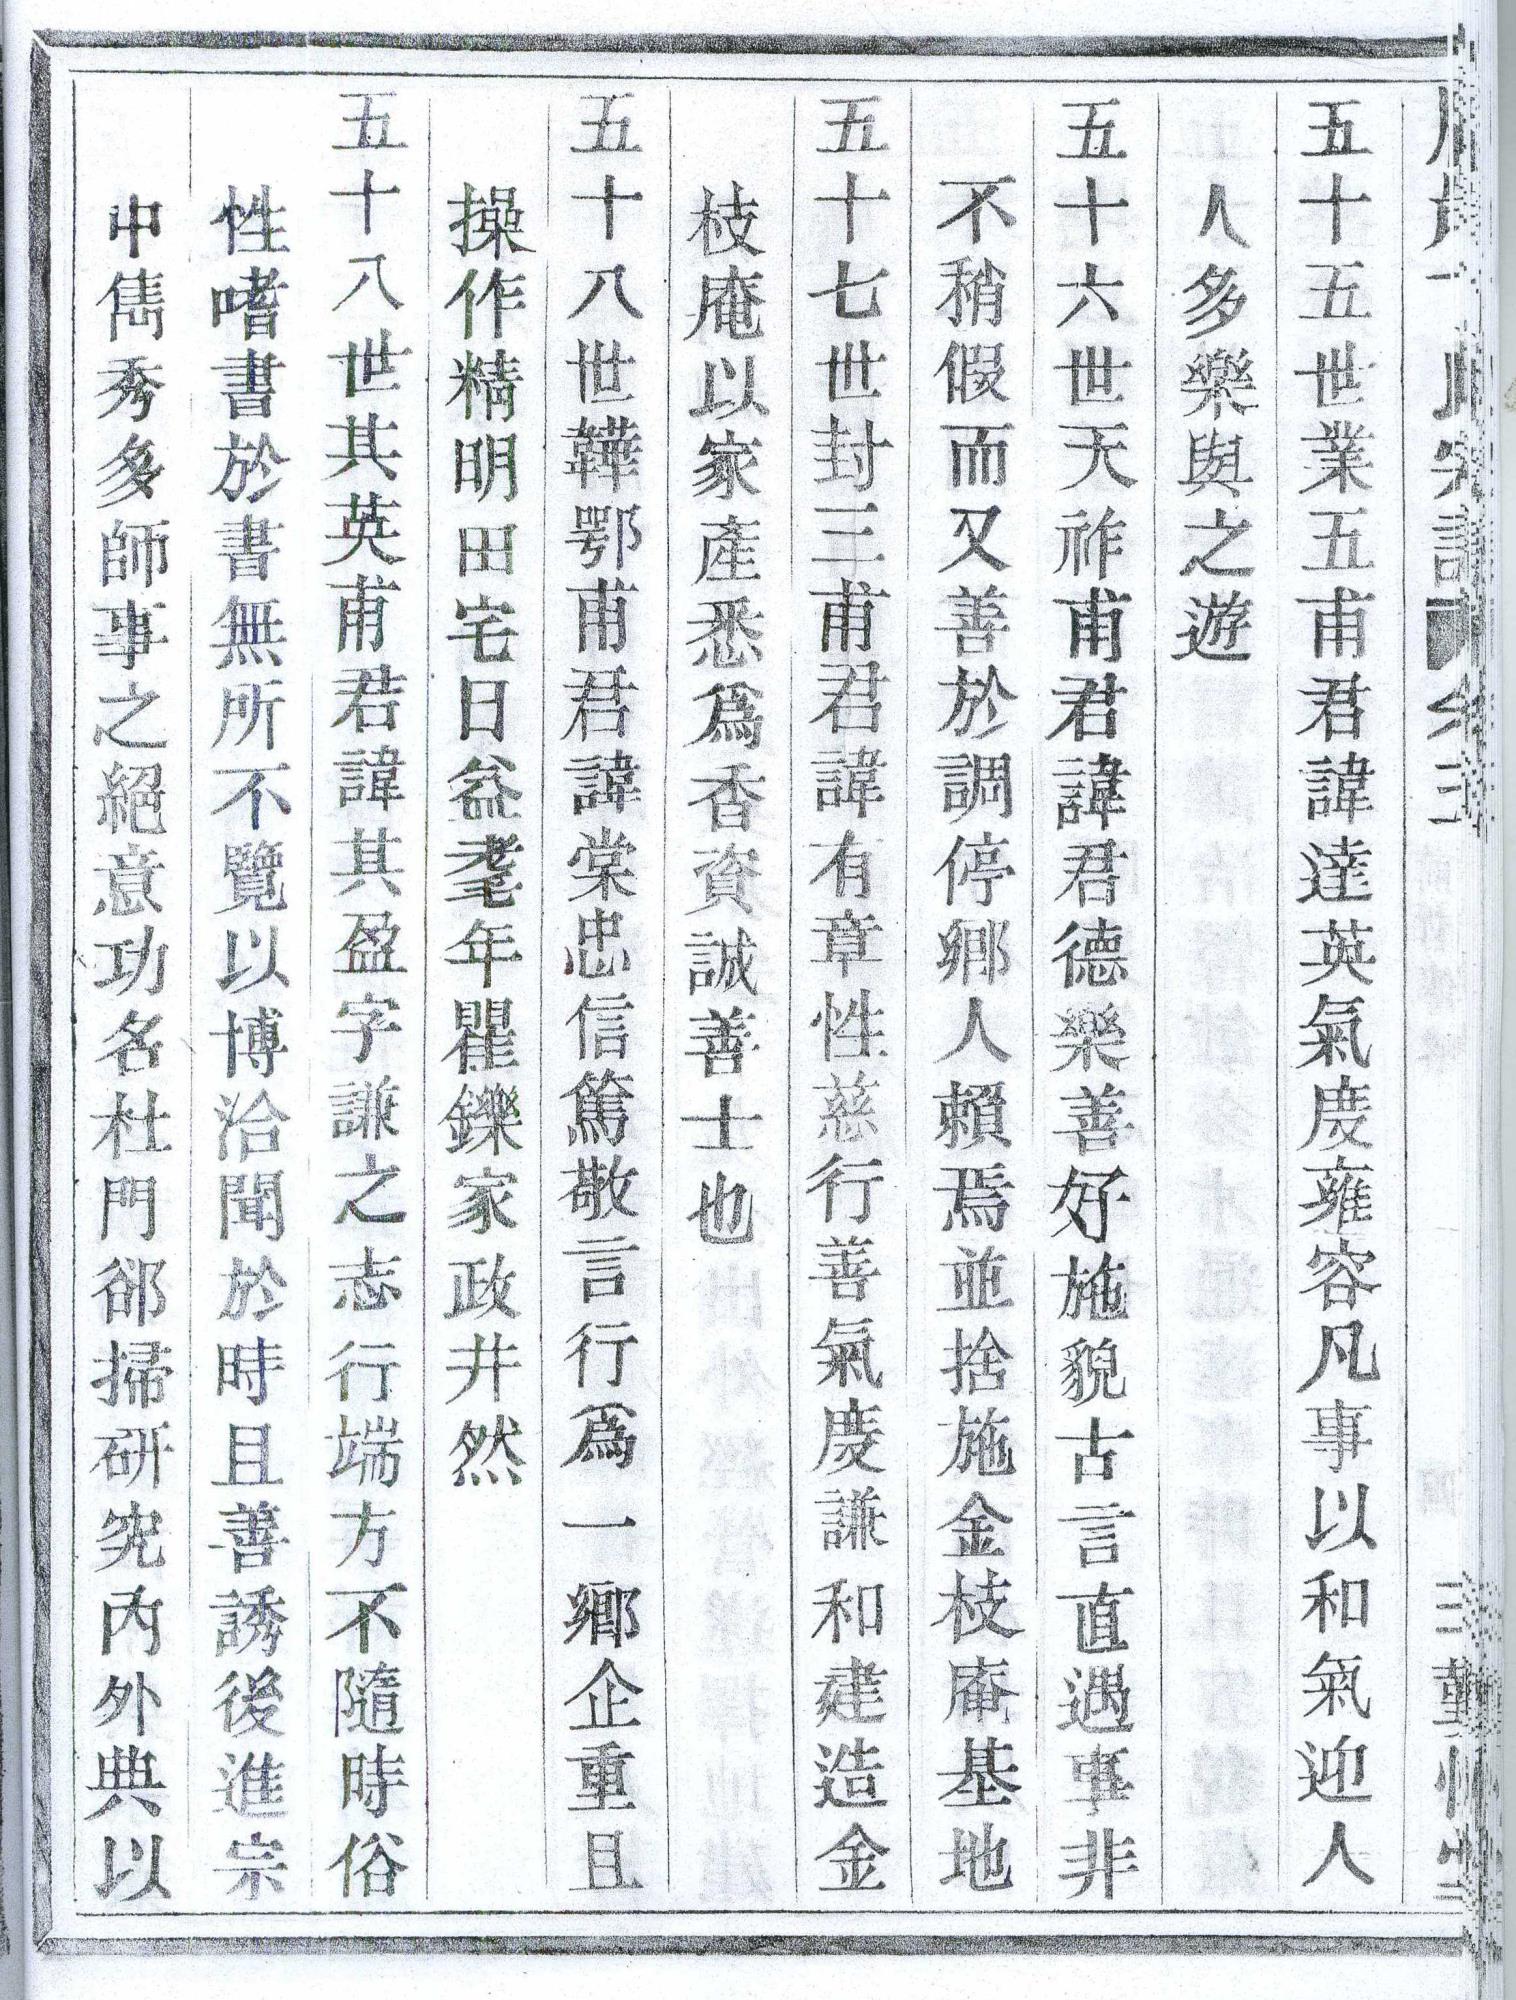 五十五世業五甫君諱達英氣度雍容凡事以和氣迎人
人多樂與之遊
五十六世天祚甫君諱君德樂善好施貌古言直遇事非
不稍假而又善於調停鄉人賴焉並捨施金枝庵基地
五十七世封三甫君諱有章性慈行善氣度謙和建造金
枝庵以家產悉爲香資誠善士也
五十八世韡鄂甫君諱棠忠信篤敬言行爲一鄉企重且
操作精明田宅日益耄年矍鑠家政井然
五十八世其英甫君諱其盈字謙之志行端方不隨時俗
性嗜書於書無所不覽以博洽聞於時且善誘後進宗
中雋秀多師事之絕意功名杜門郤掃硏究內外典以